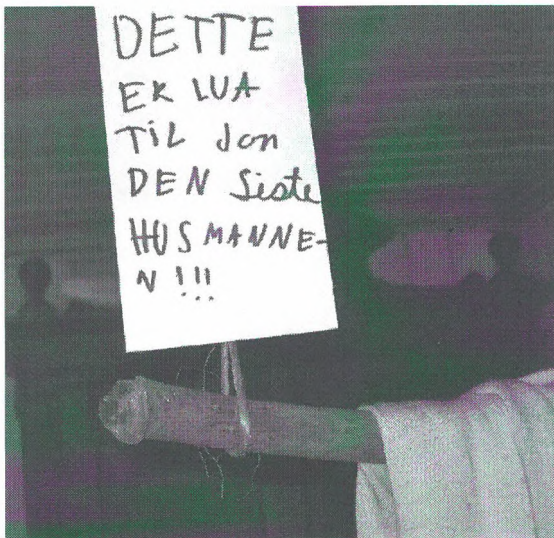 DETTE
ER LUA
TIL Jon
DEN Siste
HUSMANNE-
N !!!